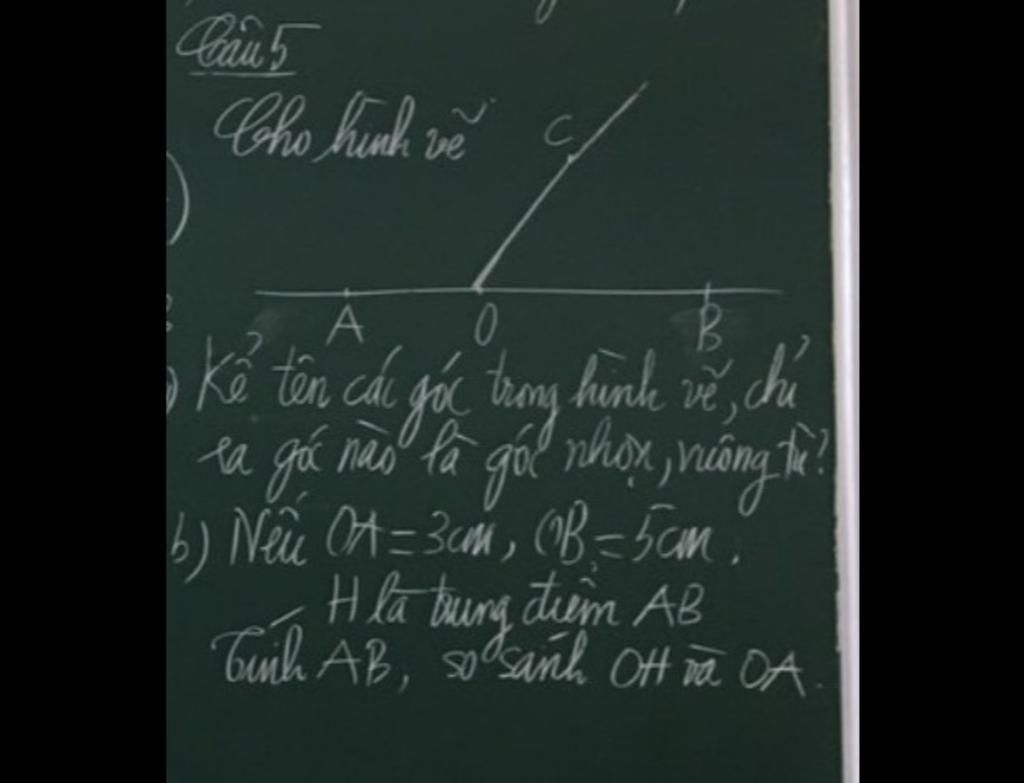 Câu 5
Cho hình vẽ
C
A O B
Kể tên các góc trong hình vẽ, chỉ
ra góc nào là góc nhọn, vuông, tù?
b) Nếu OA = 3cm, OB = 5cm.
H là trung điểm AB
Tính AB, so sánh OH và OA.